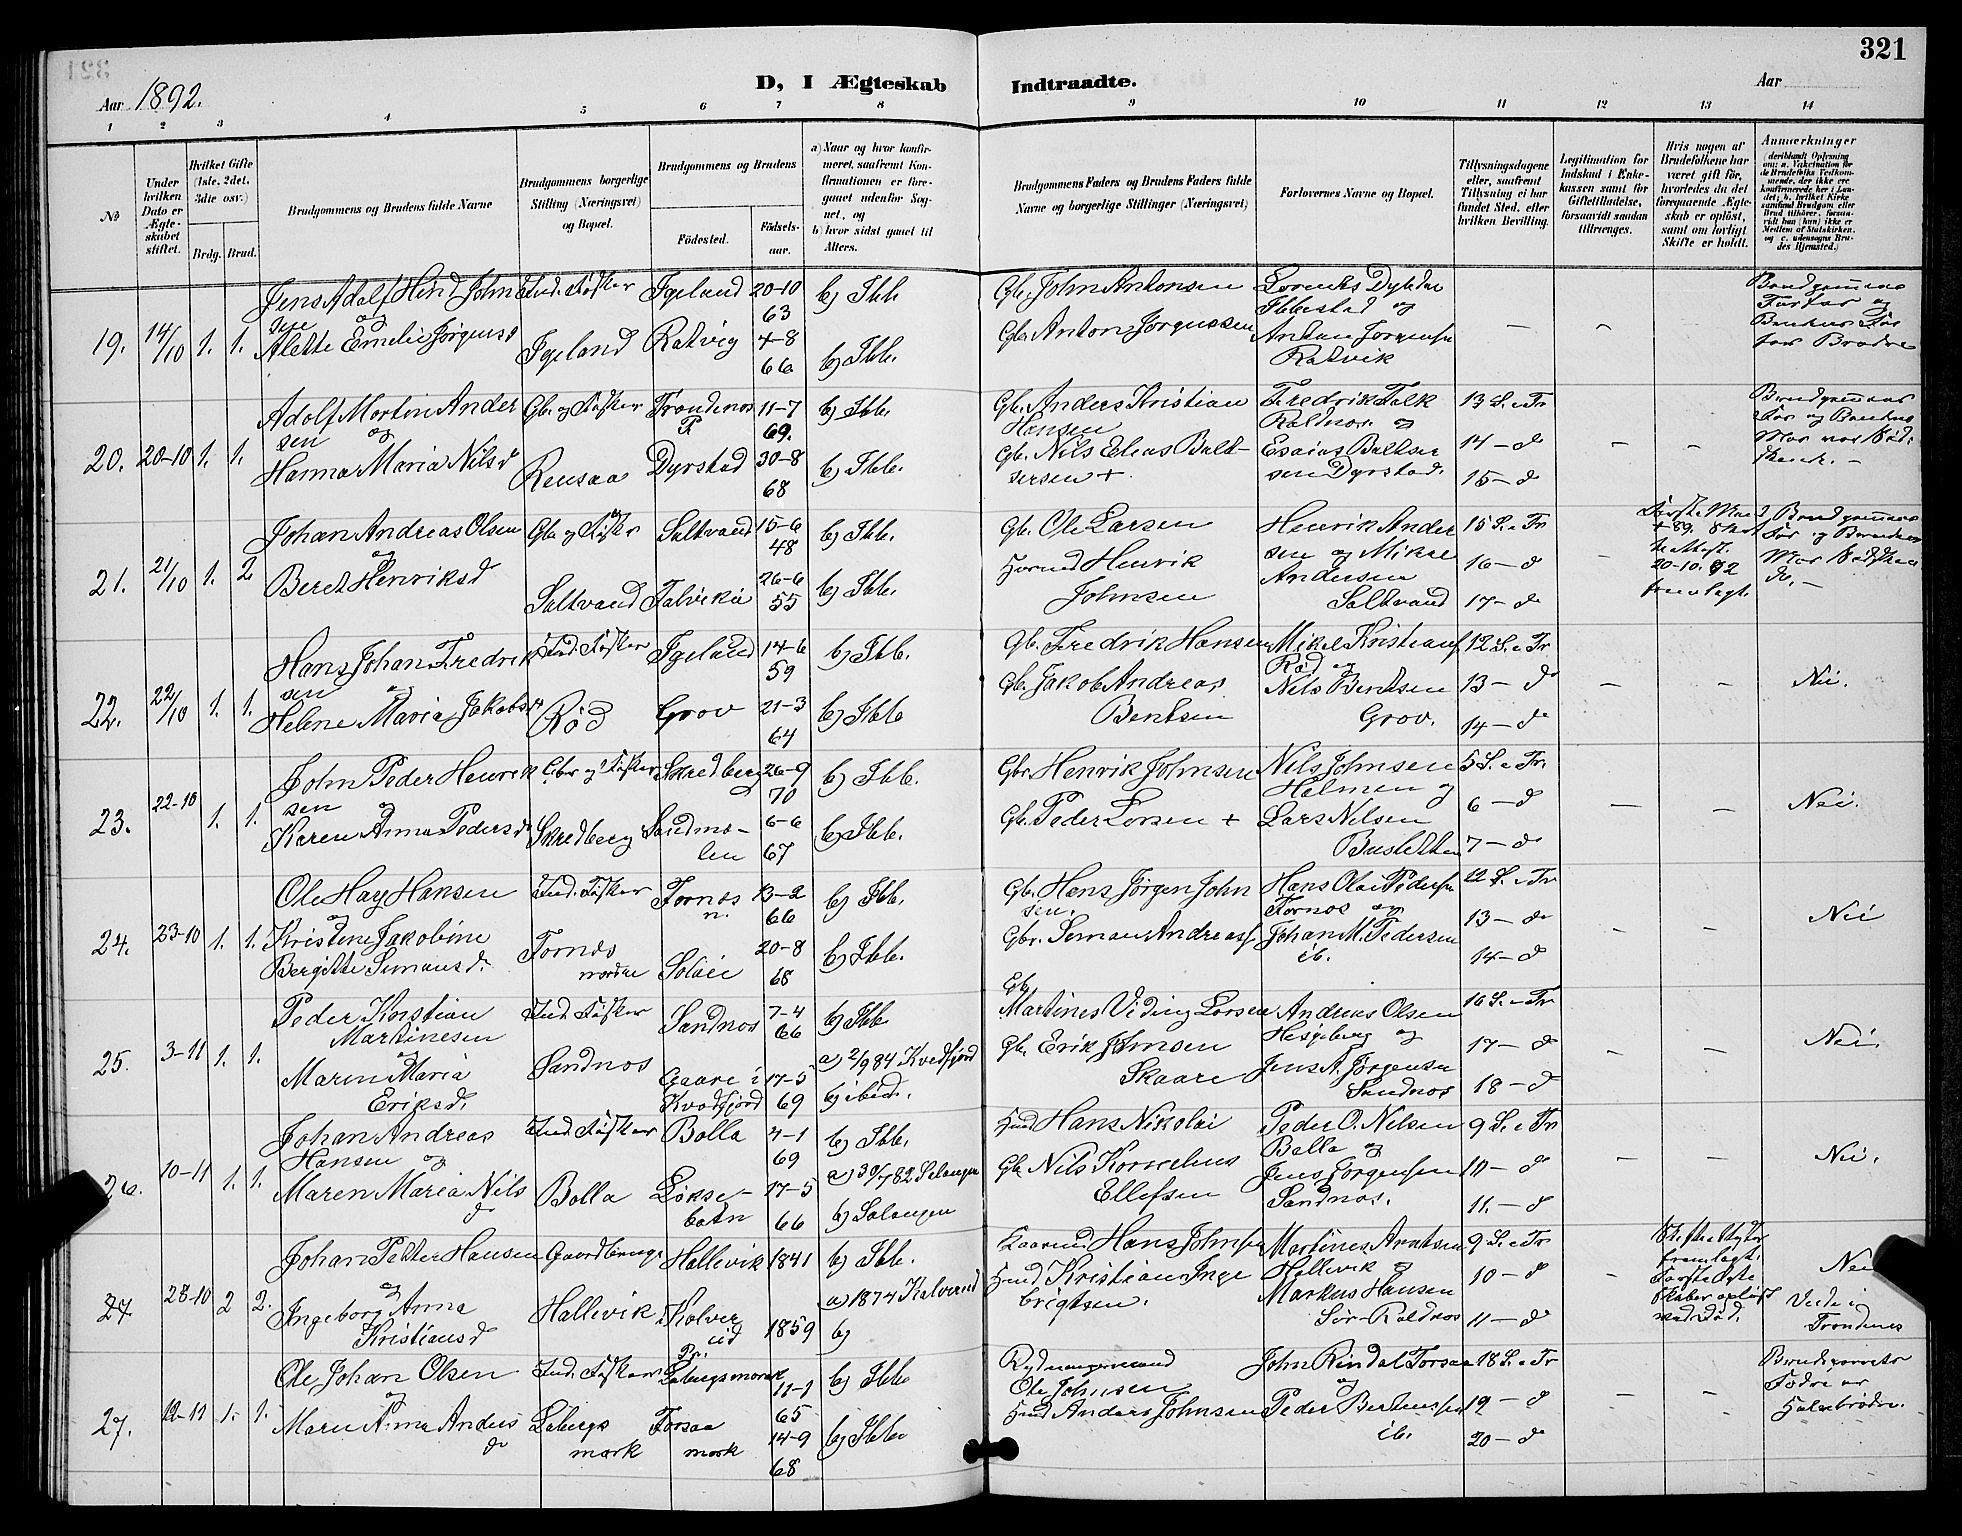 321
D, I Ægteskab Indtraadte.
Aar 1892.
Aar
1 2 3 4 5 6 7 8 9 10 11 12 13 14
No
Under hvilken Dato er Ægteskabet stiftet.
Hvilket Gifte (1ste, 2det, 3die osv.)
Brdg. Brud.
Brudgommens og Brudens fulde Navne
Brudgommens borgerlige Stilling (Næringsvei) og Bopæl.
Brudgommens og Brudens
Fødested. Fødselsaar.
a) Naar og hvor konfirmeret, saafremt Konfirmationen er foregaaet udenfor Sognet, og
b) hvor sidst gaaet til Alters.
Brudgommens Faders og Brudens Faders fulde Navne og borgerlige Stillinger (Næringsvei)
Forlovernes Navne og Bopæl.
Tillysningsdagene eller, saafremt Tillysning ei har fundet Sted, efter hvilken Bevilling.
Legitimation for Indskud i Enkekassen samt for Giftetilladelse, forsaavidt saadan tiltrænges.
Hvis nogen af Brudefolkene har været gift før, hvorledes da det foregaaende Ægteskab er opløst, samt om lovligt Skifte er holdt.
Anmærkninger
19. 14/10 1. 1.
Jens Adolf Hind Johnsen og
Alette Emelie Jørgensd
Ind. Fisker
Igeland
Igeland 20-10 63
Ratvig 4-8 66
b) Ibb.
b) Ibb.
Gb. John Antonsen
Gb. Anton Jørgensen
Lorents Dykder
Ibbestad og
Anton Jørgensen
Ratvik
Brudgommens
Farfar og
Brudens Far
far Brødre
20. 20-10 1. 1.
Adolf Martin Andersen og
Hanna Maria Nilsd
Gb. og Fisker
Rensaa
Trondenes P 11-7 69.
Dyrstad 30-8 68
b) Ibb.
b) Ibb.
Gb. Anders Kristian
Hansen
Gb. Nils Elias Baltsersen +
Fredrik Falk
Raldnos. og
Esaias Baltser
sen Dyrstad.
13 S. e Tr
14 - d
15 - d
Brudgommens
Far og Brudens
Mor var Sødskend. -
21. 21/10 1. 2
Johan Andreas Olsen
og
Beret Henriksd
Gb. og Fisker
Saltvand
Saltvand 15-6 48
Talvika 26-6 55
b) Ibb.
b) Ibb.
Gb. Ole Larsen
Henrik
Johnsen
Henrik Ander
sen og Mikal
Andersen
Saltvand
15 S. e Tr
16 - d
17 - d
Første Mand
+ 89. Skif
teattest.
20-10. 92
fremlagt.
Brudgommens
Far og Brudens
Mor Sødsken
de. -
22. 22/10 1. 1.
Hans Johan Fredrik
sen og
Helene Maria Jakobsd
Ind. Fisker
Rød
Igeland 14-6 59
Grov 21-3 64
b) Ibb.
b) Ibb
Gb. Fredrik Hansen
Gb. Jakob Andreas
Bentsen
Mikal Kristians
Rød og
Nils Bentsen
Grov.
12 S. e Tr
13 - d
14 - d
Nei.
23. 22-10 1. 1.
John Peder Henrik
sen og
Karen Anna Pedersd
Gbr og Fisker
Skredberg
Skredberg 26-9 70
Sandmo-
len 6-6 67
b) Ibb.
b) Ibb.
Gbr. Henrik Johnsen
Gb. Peder Larsen +
Nils Johnsen
Holmen og
Lars Nilsen
Busletten
5 S. e Tr.
6 - d
7 - d
Nei.
24. 23-10 1. 1.
Ole Hay Hansen
og
Kristine Jakobine
Bergitte Simonsd.
Ind. Fisker
Fornes
nordre
Fornes n. 13-2 66
Solei 20-8 68
b) Ibb.
b) Ibb.
Gb. Hans Jørgen John
sen.
Gbr. Simon Andreass
Hans Olai Pedersen
Fornes og
Johan M. Pedersen
ib.
12 S. e Tr
13 - d
14 - d
Nei
25. 3-11 1. 1.
Peder Kristian
Martinesen
og
Maren Maria
Eriksd.
Ind. Fisker
Sandnos
Sandnos 7-4 66
Gaare i
Kvedfjord 17-5 69
b) Ibb
a) 2/9 84 Kvedfjord
b) ibid.
Gb.
Martines Viding Larsen
Gb. Erik Johnsen
Skaare
Andreas Olsen
Hesjeberg og
Jens A. Jørgensen
Sandnos
16 S. e Tr
17 - d
18 - d
Nei.
26. 10-11 1. 1.
Johan Andreas
Hansen og
Maren Maria Nils
d
Ind. Fisker
Bolla
Bolla 4-1 69
Løkse-
batn 17-5 66
b) Ibb.
a) 30/7 82 Salangen
b) Salangen
Hmd Hans Nikolai
Gb. Nils Kornelius
Ellefsen
Peder O. Nilsen
Bolla og
Jens Jørgensen
Sandnos.
9 S. e Tr
10 - d
11. - d
Nei.
27 28-10 2 2.
Johan Petter Hansen
og
Ingeborg Anna
Kristiansd
Gaardbruger
Hallevik
Hallevik 1841
Kolver
eid 1859
b) Ibb.
a) 1874 Kolvereid
b)
Hans Johnsen
Hmd Kristian Inge
brigtsen.
Martines Arntsen
Hallevik og
Markus Hansen
Sør-Raldnos
9 S. e Tr
10 - d
11 - d
Skifteattester
fremlagt.
Første Ægte
skaber opløst
ved Død.
Nei
Viede i
Trondenes
27. 12-11 1. 1.
Ole Johan Olsen
og
Maren Anna Anders
d
Ind. Fisker
Labergs
mark
Labergsmark 11-1 65
Forsaa
mark 14-9 68
b) Ibb
b) Ibb
Rydningsmand
Ole Johnsen
Hmd Anders Johnsen
John Rindal Forsaa
og
Peder Berthensen
ib.
18 S. e Tr
19 - d
20 - d
Brudeparrets
Fædre er
Halvbrødre.